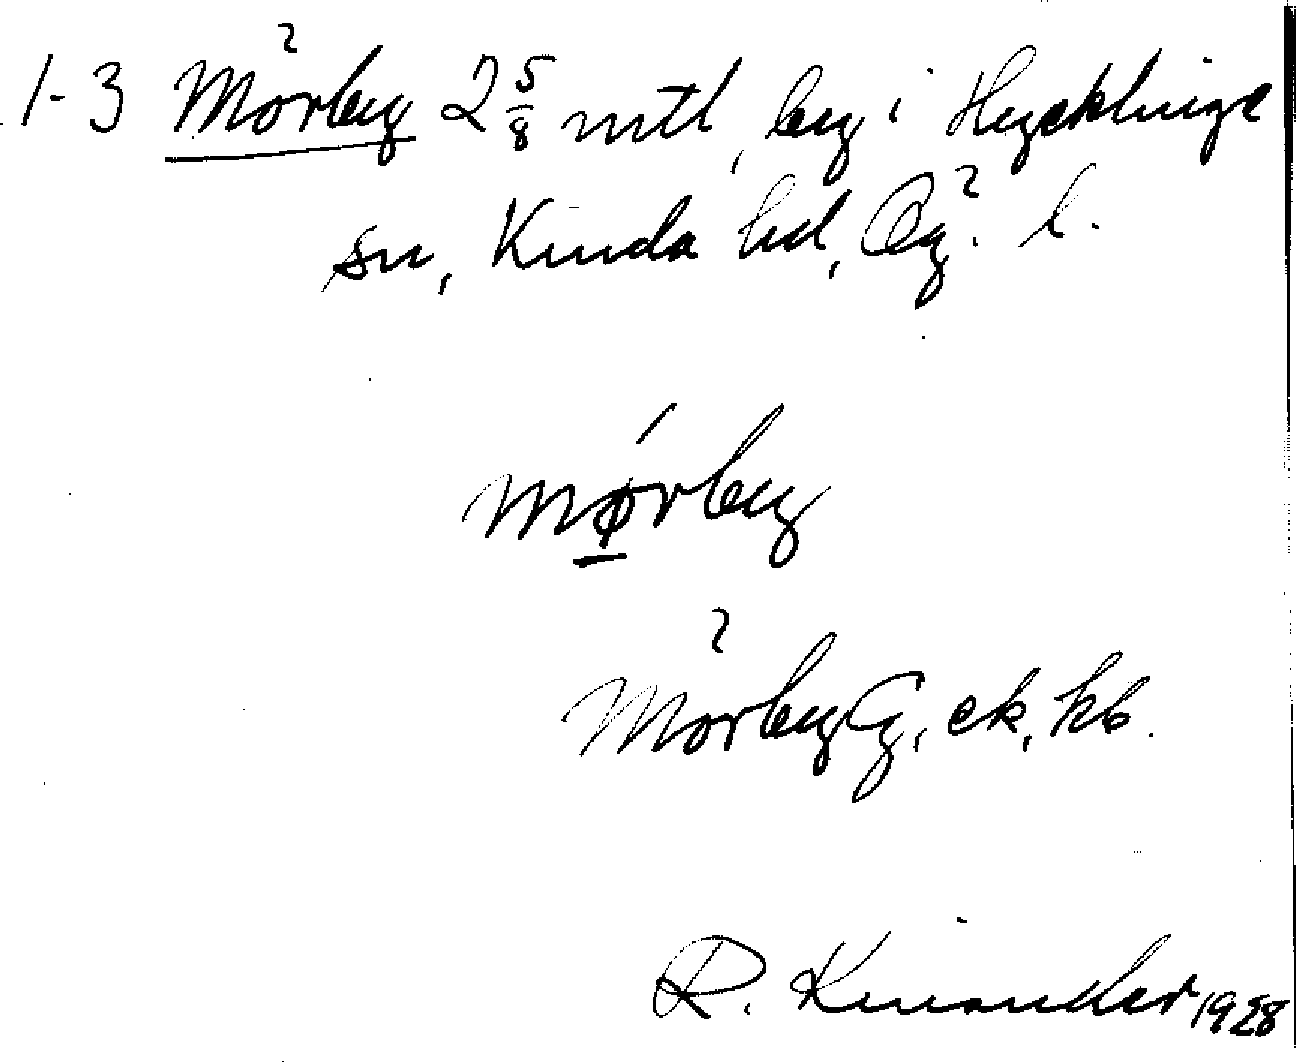 1-3 Mörby 2 5/8 mtl, by i Hycklinge
sn, Kinda hd, Ög. l.
mørby
Mörby G, ek, kb.
R. Kinander 1928